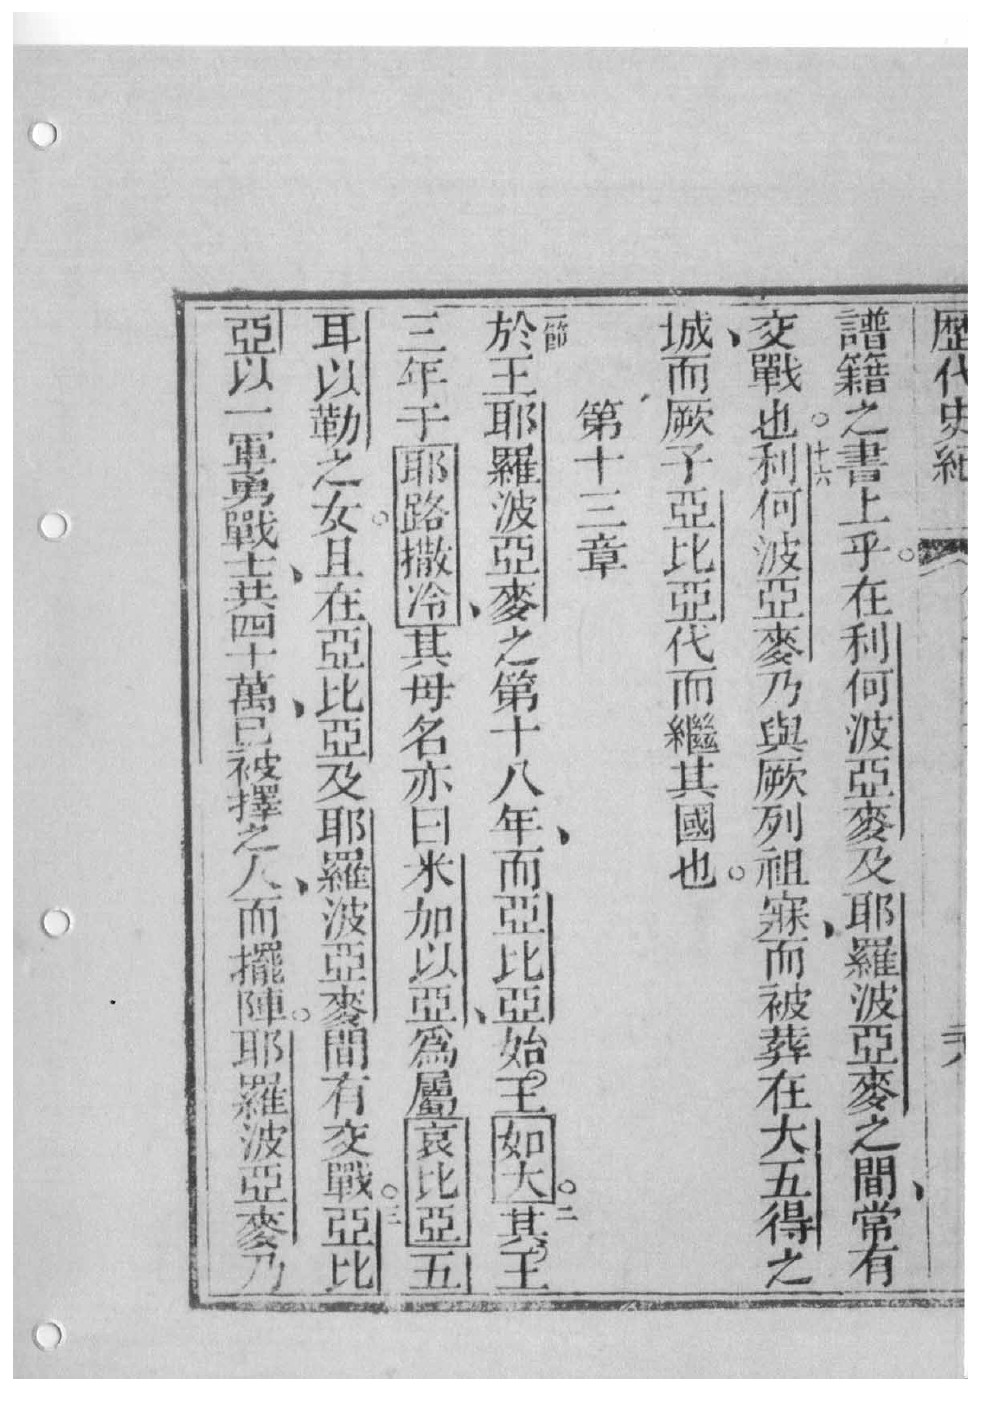 歴代史紀
譜籍之書上乎。在利何波亞麥及耶羅波亞麥之間、常有
交戰也。十六利何波亞麥乃與厥列祖寐、而被葬在大五得之
城、而厥子亞比亞代而繼其國也。
第十三章
一節於王耶羅波亞麥之第十八年、而亞比亞始王如大。二其王
三年于耶路撒冷、其母名亦曰米加以亞、爲屬哀比亞五
耳以勒之女。且在亞比亞及耶羅波亞麥間有交戰。三亞比
亞以一軍勇戰士、共四十萬、已被擇之人、而擺陣。耶羅波亞麥乃